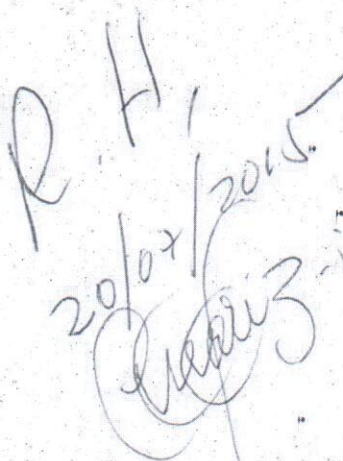 R.H.
20/07/2015